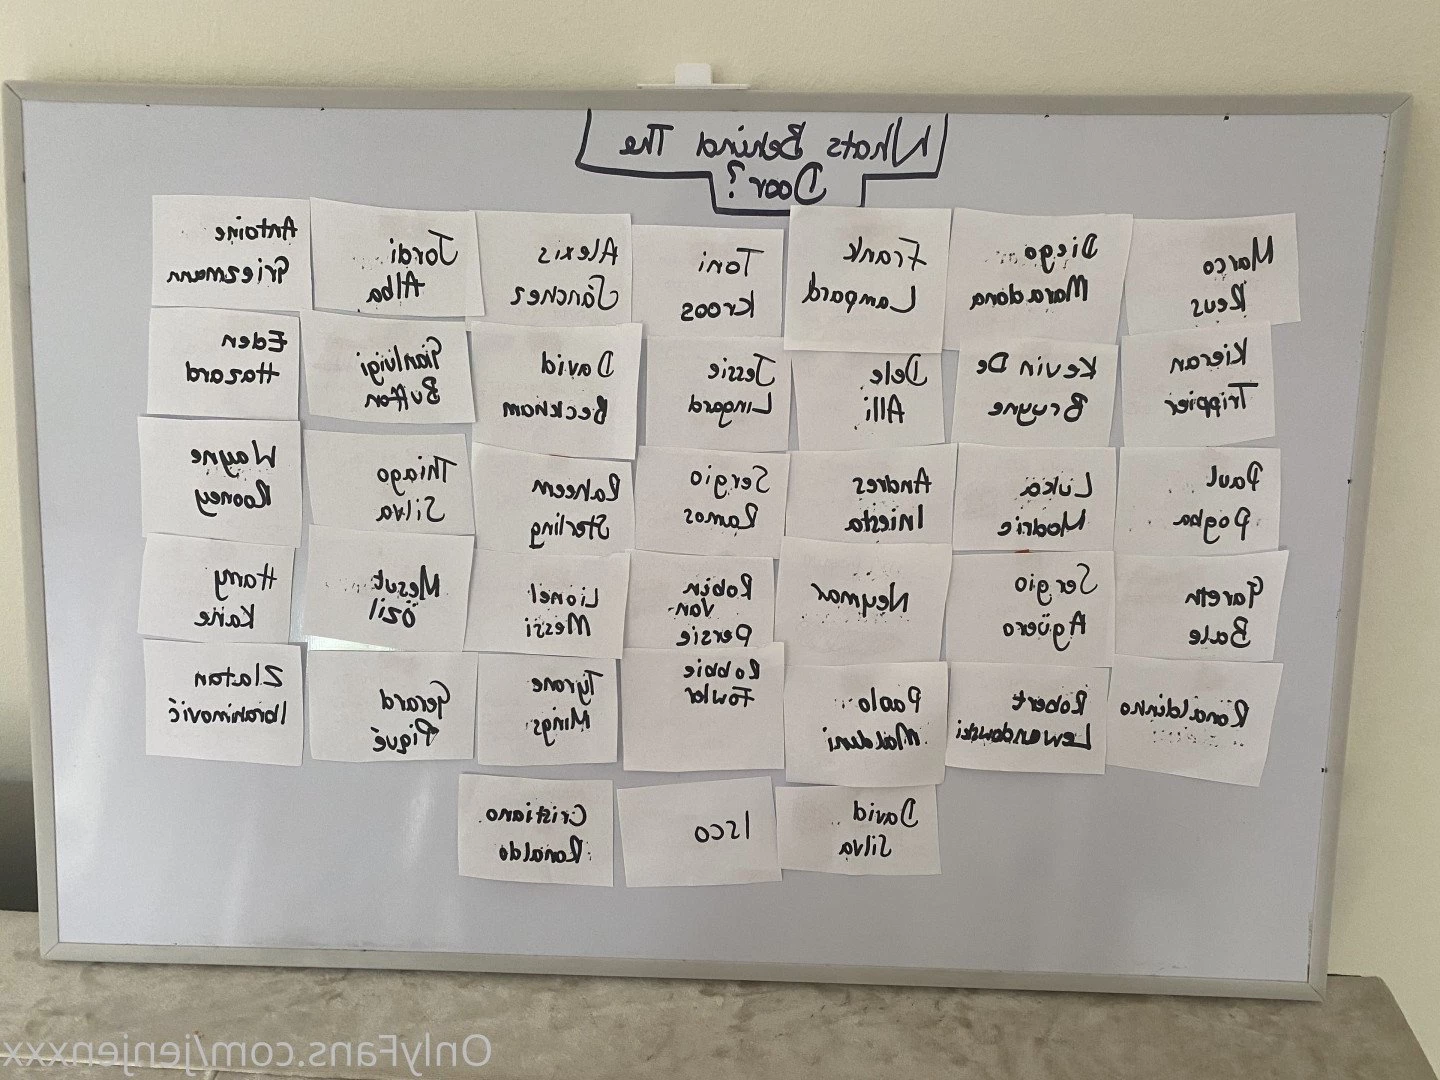 Whats Behind The
Door?
Marco
Reus
Diego
Maradona
Frank
Lampard
Toni
Kroos
Alexis
Sánchez
Jordi
Alba
Antoine
Griezmann
Kieran
Trippier
Kevin De
Bruyne
Dele
Alli
Jessie
Lingard
David
Beckham
Gianluigi
Buffon
Eden
Hazard
Paul
Pogba
Luka
Modric
Andres
Iniesta
Sergio
Ramos
Raheem
Sterling
Thiago
Silva
Wayne
Rooney
Gareth
Bale
Sergio
Agüero
Neymar
Robin
Van
Persie
Lionel
Messi
Mesut
Özil
Harry
Kane
Ronaldinho
Robert
Lewandowski
Paolo
Maldini
Robbie
Fowler
Tyrone
Mings
Gerard
Piqué
Zlatan
Ibrahimović
David
Silva
Isco
Cristiano
Ronaldo
OnlyFans.com/jenjenxxx